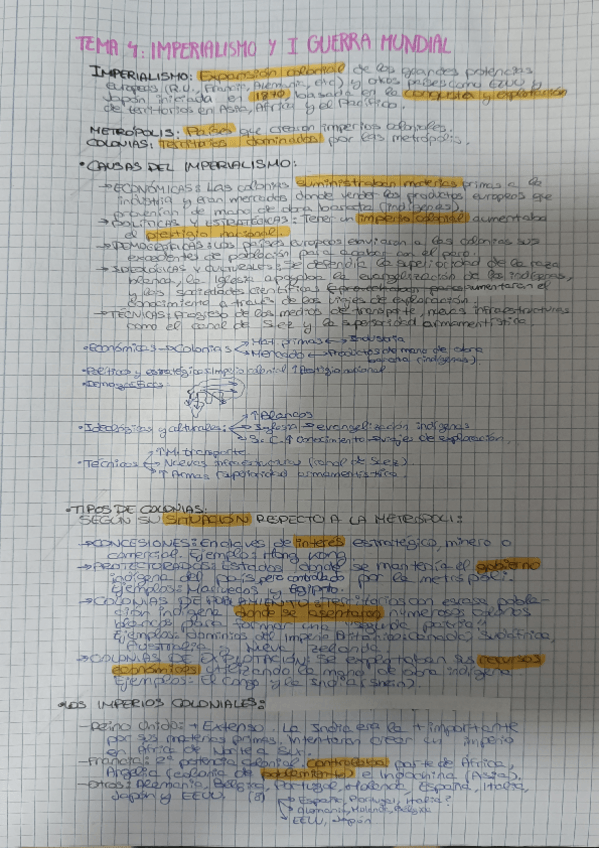 TEMA 4: IMPERIALISMO Y I GUERRA MUNDIAL
IMPERIALISMO: Expansión colonial de las grandes potencias
europeas (R.U., Francia, Alemania, etc) y otros países como EEUU y
Japón iniciada en 1870, basada en la conquista y explotación
de territorios en Asia, África y el Pacífico.
METRÓPOLIS: Países que crearon imperios coloniales.
COLONIAS: Territorios dominados por las metrópolis.
• CAUSAS DEL IMPERIALISMO:
→ ECONÓMICAS: Las colonias suministraban materias primas a la
industria y eran mercados donde vender los productos europeos que
de mano de obra barata (indígenas).
→ POLÍTICAS Y ESTRATÉGICAS: Tener un imperio colonial aumentaba
el prestigio nacional.
→ DEMOGRÁFICAS: Los países europeos enviaron a las colonias sus
excedentes de población para acabar con el paro.
→ IDEOLÓGICAS Y CULTURALES: Se defendía la superioridad de la raza
blanca, la iglesia apoyaba la evangelización de los indígenas,
y las sociedades científicas aumentaran el
conocimiento a través de los viajes de exploración.
→ TÉCNICAS: Progreso de los medios de transporte, nuevas infraestructuras
como el canal de Suez y la superioridad armamentística.
• Económicas → Colonias Mat. primas → Industria
Mercado Productos de mano de obra
barata (indígenas)
• Políticas y estratégicas: Imperio colonial ↑ Prestigio nacional
• Demográficas:
↑ Blancos
• Ideológicas y culturales: Iglesia → evangelización indígenas
S. C. ↑ Conocimiento → viajes de exploración.
↑ M. transporte.
• Técnicas Nuevas infraestructuras (canal de Suez)
↑ Armas (superioridad armamentística).
• TIPOS DE COLONIAS:
SEGÚN SU SITUACIÓN RESPECTO A LA METRÓPOLI:
→ CONCESIONES: Enclaves de interés estratégico, minero o
comercial. Ejemplo: Hong Kong.
→ PROTECTORADOS: Estados donde se mantenía el gobierno
indígena del país pero controlado por la metrópoli.
Ejemplos: Marruecos y Egipto.
→ COLONIAS DE POBLAMIENTO: Territorios con escasa pobla-
ción indígena donde se asentaron numerosos colonos
blancos para formar una "segunda patria".
Ejemplos: dominios del Imperio Británico: Canadá, Sudáfrica,
Australia y Nueva Zelanda.
→ COLONIAS DE EXPLOTACIÓN: Se explotaban sus recursos
económicos utilizando la mano de obra indígena.
Ejemplos: El Congo y la India
• LOS IMPERIOS COLONIALES:
– Reino Unido: + Extenso. La India era la + importante
por sus materias primas. Intentaron crear un imperio
en África de Norte a Sur.
– Francia: 2ª potencia colonial. Controlaba parte de África,
Argelia (colonia de poblamiento) e Indochina (Asia).
– Otros: Alemania, Bélgica, Portugal, Holanda, España, Italia,
Japón y EEUU (8) España, Portugal, Italia
Alemania, Holanda, Bélgica
EEUU, Japón